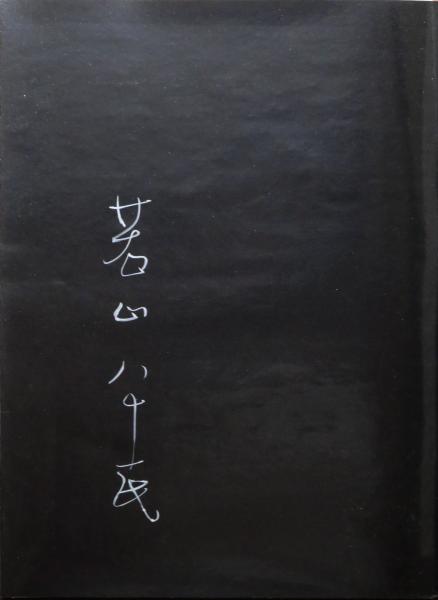 若山八十氏